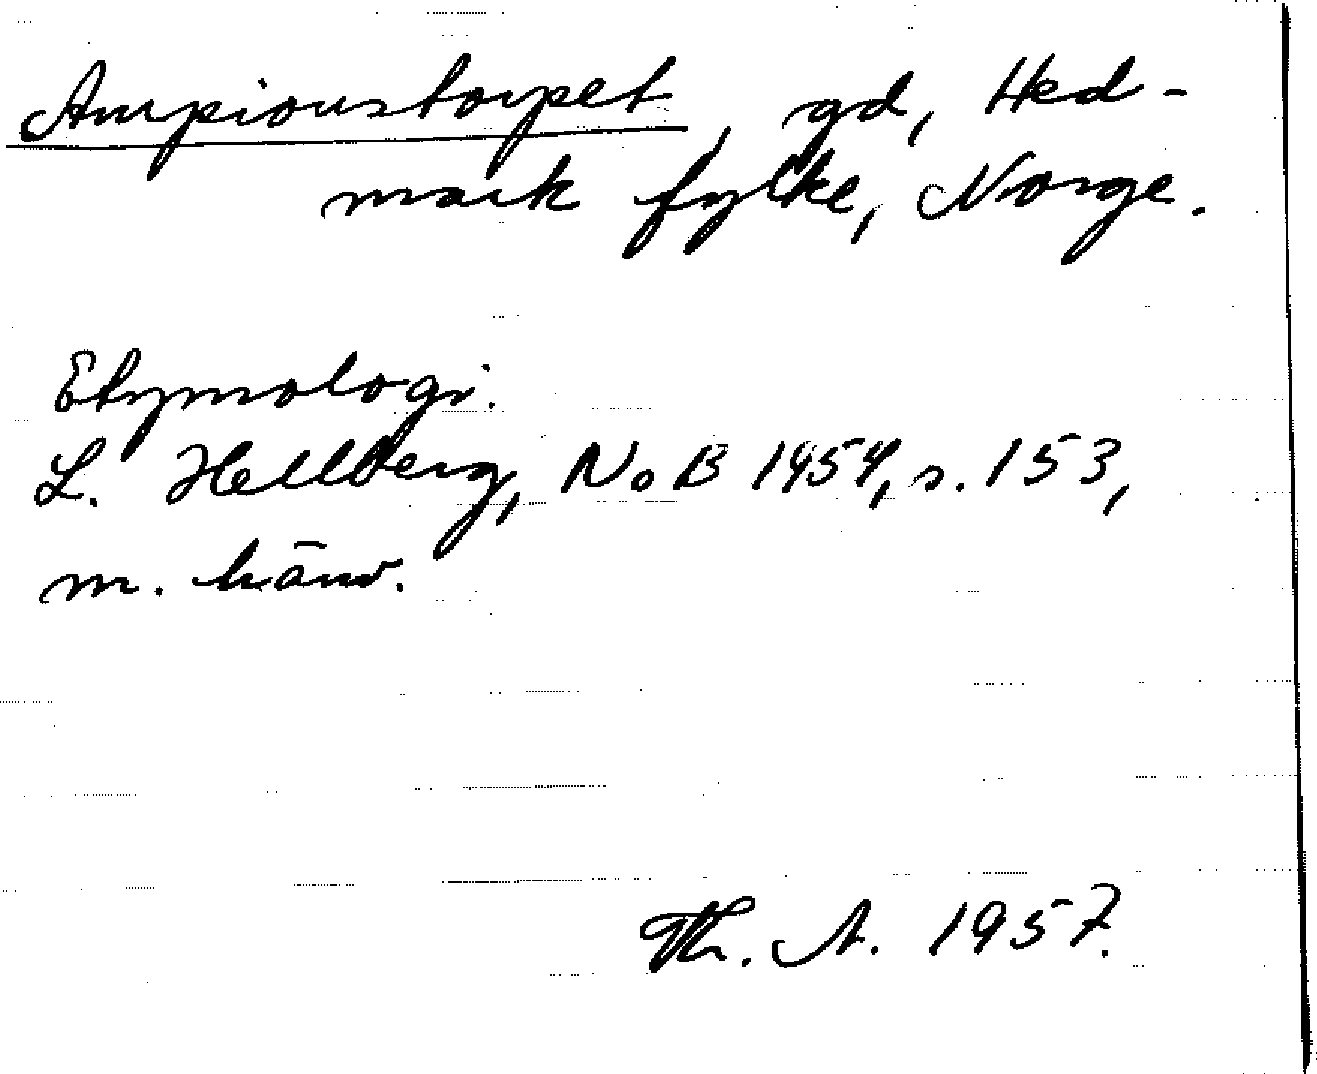 Ampionstorpet, gd, Hed-
mark fylke, Norge.
Etymologi.
L. Hellberg, NoB 1954, s. 153,
m. hänv.
Th. A. 1957.